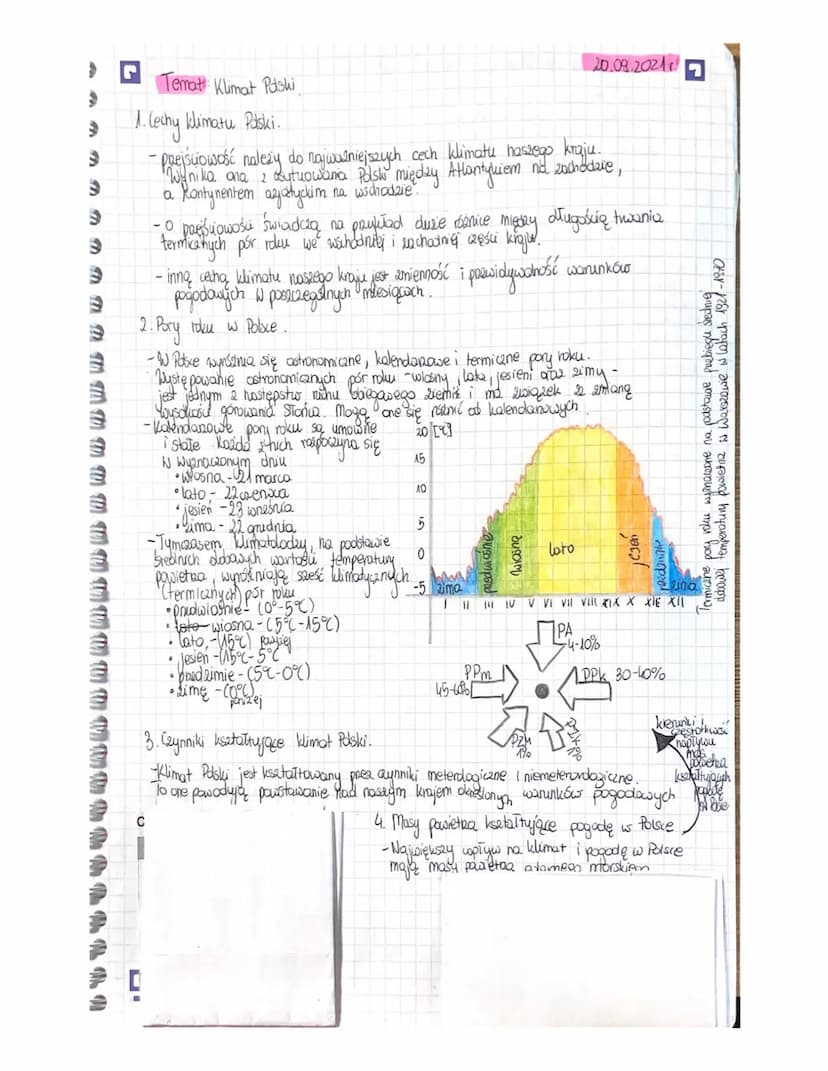 20.09.2021r.
Temat: Klimat Polski.
1. Cechy klimatu Polski.
- przejściowość należy do najważniejszych cech klimatu naszego kraju.
Wynika ona z usytuowania Polski między Atlantykiem na zachodzie,
a kontynentem azjatyckim na wschodzie.
- O przejściowości świadczą na przykład duże różnice między długością trwania
termicznych pór roku we wschodniej i zachodniej części kraju.
- inną cechą klimatu naszego kraju jest zmienność i przewidywalność warunków
pogodowych w poszczególnych miesiącach.
2. Pory roku w Polsce.
- W Polsce wyróżnia się astronomiczne, kalendarzowe i termiczne pory roku.
Występowanie astronomicznych pór roku - wiosny, lata, jesieni oraz zimy -
jest jednym z następstw ruchu obiegowego Ziemi i ma związek ze zmianą
wysokości górowania Słońca. Mogą one się różnić od kalendarzowych.
- Kalendarzowe pory roku są umowne
i stałe. Każda z nich rozpoczyna się
w wyznaczonym dniu
• wiosna - 21 marca
• lato - 22 czerwca
• jesień - 23 września
• zima - 22 grudnia
- Tymczasem klimatolodzy, na podstawie
średnich dobowych wartości temperatury
powietrza, wyróżniają sześć klimatycznych
(termicznych) pór roku
• przedwiośnie - (0°-5°C)
• lato wiosna - (5°C-15°C)
• lato, - (15°C) powyżej
• jesień - (15°C - 5°C
• przedzimie - (5°C-0°C)
• zimę - (0°C)
poniżej
20 [°C]
15
10
5
0
-5
zima
przedwiośnie
wiosna
lato
jesień
przedzimie
zima
I II III IV V VI VII VIII IX X XI XII
Termiczne pory roku wyznaczone na podstawie przebiegu średniej
dobowej temperatury powietrza w Warszawie w latach 1921-1970
PA
4-10%
PPm
45-60%
PPk 30-40%
PZm
1%
PZk
1%
kierunki i
częstotliwość
napływu
mas
powietrza
kształtujących
pogodę
w Polsce
3. Czynniki kształtujące klimat Polski.
- Klimat Polski jest kształtowany przez czynniki meterologiczne i niemeterorologiczne.
To one powodują powstawanie nad naszym krajem określonych warunków pogodowych
4. Masy powietrza kształtujące pogodę w Polsce
- Największy wpływ na klimat i pogodę w Polsce
mają masy powietrza